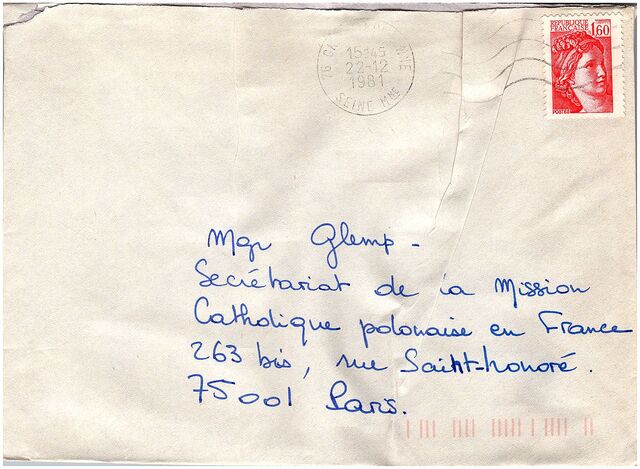 REPUBLIQUE
FRANÇAISE
1,60
POSTES
15H45
22-12
1981
76
SEINE Mme
Mgr Glemp -
Secrétariat de la Mission
Catholique polonaise en France
263 bis, rue Saint-honoré.
75001 Paris.